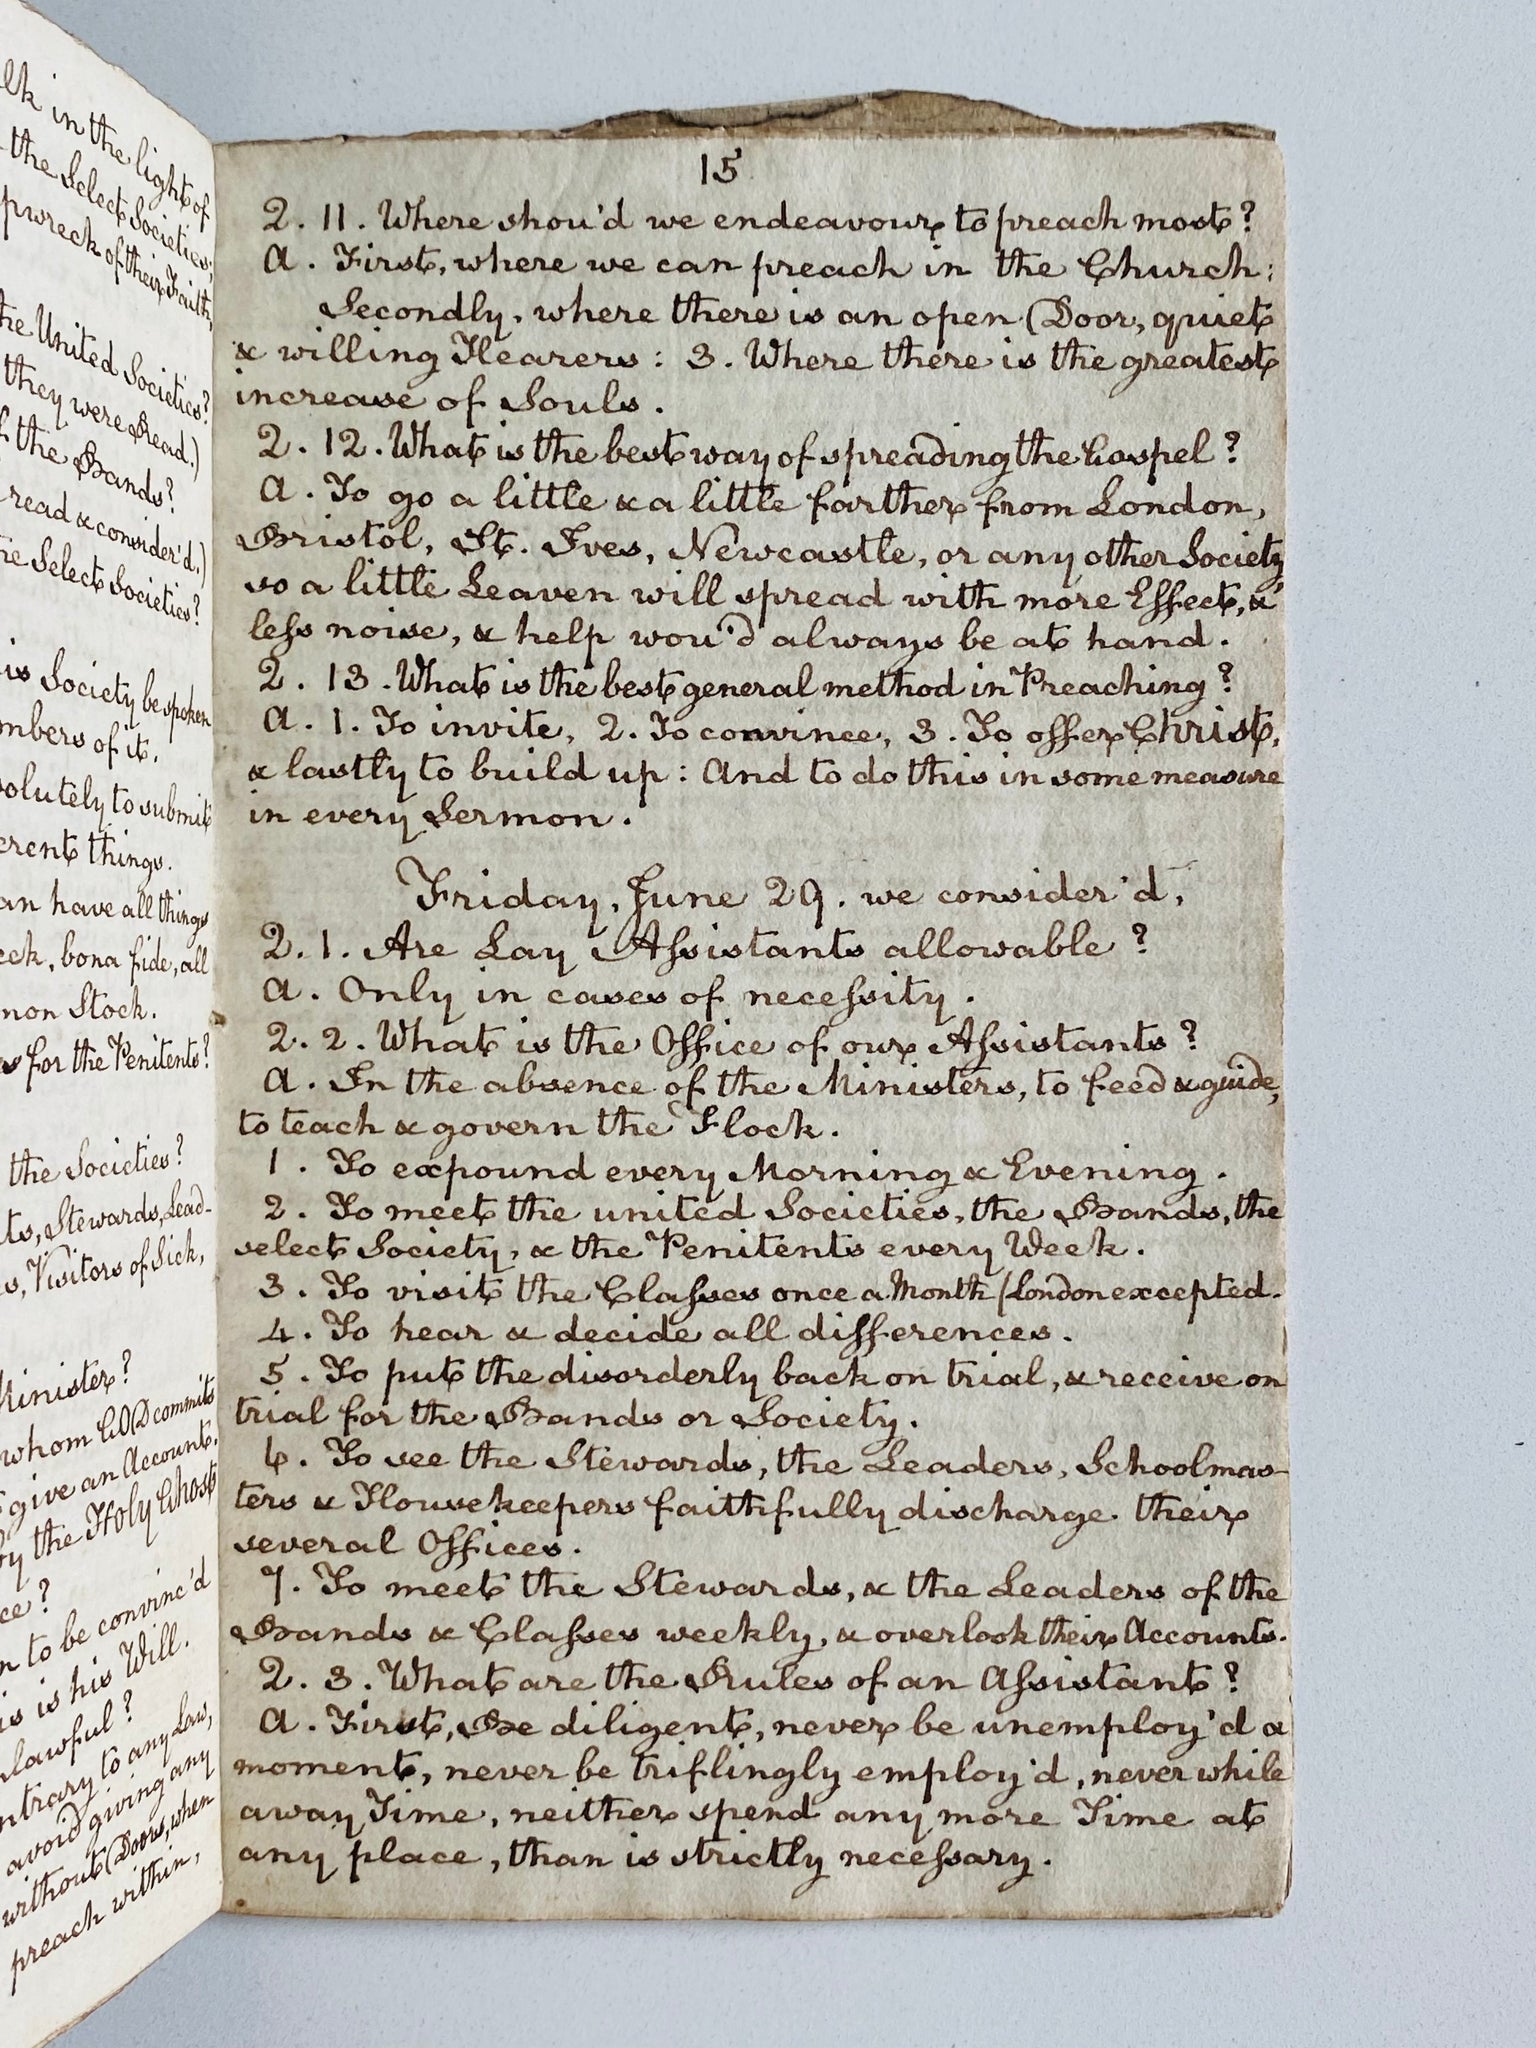 lk in the light of
the Select Societies;
pwreck of their Faith,
he United Societies?
they were Read.)
f the Bands?
read & consider'd.)
he Select Societies?
is Society be spoken
mbers of it.
solutely to submit
erent things.
an have all things
eek, bona fide, all
mon Stock.
s for the Penitents?
the Societies?
ts, Stewards, Lead-
s, Visitors of Sick,
Minister?
whom GOD commits
give an Account.
by the Holy Ghost
ce?
n to be convinc'd
is is his Will.
lawful?
ntrary to any Law,
avoid giving any
without Doors, when
preach within,
15
2. 11. Where shou'd we endeavour to preach most?
A. First, where we can preach in the Church:
Secondly, where there is an open Door, quiet
& willing Hearers: 3. Where there is the greatest
increase of Souls.
2. 12. What is the best way of spreading the Gospel?
A. To go a little & a little farther from London,
Bristol, St. Ives, Newcastle, or any other Society
so a little Leaven will spread with more Effect, &
less noise, & help wou'd always be at hand.
2. 13. What is the best general method in Preaching?
A. 1. To invite, 2. To convince, 3. To offer Christ,
& lastly to build up: And to do this in some measure
in every Sermon.
Friday, June 29. we consider'd,
2. 1. Are Lay Assistants allowable?
A. Only in cases of necessity.
2. 2. What is the Office of our Assistants?
A. In the absence of the Ministers, to feed & guide,
to teach & govern the Flock.
1. To expound every Morning & Evening.
2. To meet the united Societies, the Bands, the
select Society, & the Penitents every Week.
3. To visit the Classes once a Month (London excepted.
4. To hear & decide all differences.
5. To put the disorderly back on trial, & receive on
trial for the Bands or Society.
6. To see the Stewards, the Leaders, Schoolmas-
ters & Housekeepers faithfully discharge their
several Offices.
7. To meet the Stewards, & the Leaders of the
Bands & Classes weekly, & overlook their Accounts.
2. 3. What are the Rules of an Assistant?
A. First, Be diligent, never be unemploy'd a
moment, never be triflingly employ'd, never while
away Time, neither spend any more Time at
any place, than is strictly necessary.